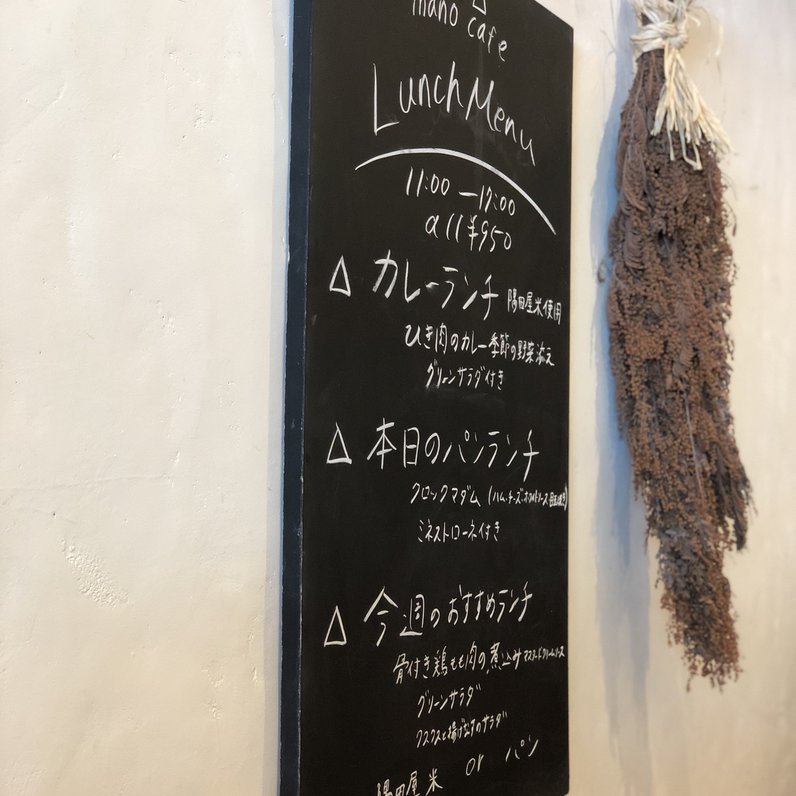 mano cafe
Lunch Menu
11:00 — 17:00
all ¥950
△ カレーランチ 隅田屋米使用
ひき肉のカレー季節の野菜添え
グリーンサラダ付き
△ 本日のパンランチ
クロックマダム (ハム・チーズ・ホワイトソース・目玉焼き)
ミネストローネ付き
△ 今週のおすすめランチ
骨付き鶏もも肉の煮込みマスタードクリームソース
グリーンサラダ
クスクスと揚げなすのサラダ
隅田屋米 or パン